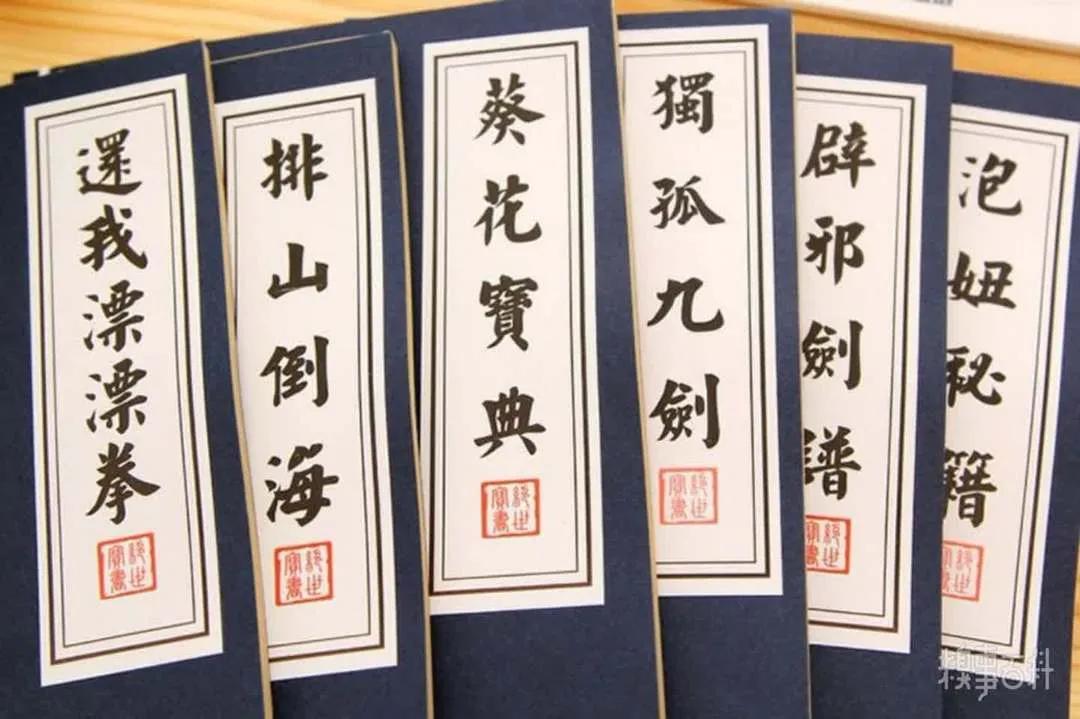 還我漂漂拳
絕世寶書
排山倒海
絕世寶書
葵花寶典
絕世寶書
獨孤九劍
絕世寶書
辟邪劍譜
絕世寶書
泡妞秘籍
絕世寶書
糗事百科